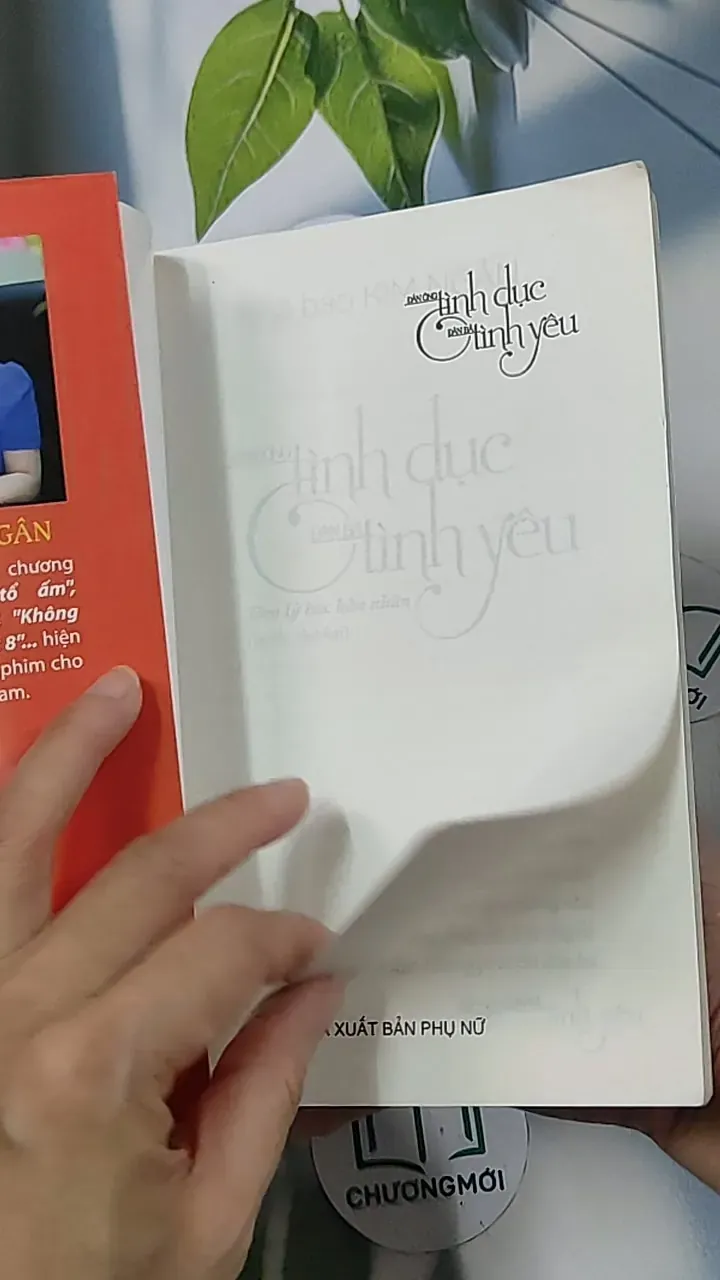 GÂN
chương
tổ ấm",
"Không
8"... hiện
phim cho
am.
ĐÀN ÔNG tình dục
ĐÀN BÀ tình yêu
tình dục
ĐÀN BÀ tình yêu
XUẤT BẢN PHỤ NỮ
CHƯƠNGMỚI
ỚI